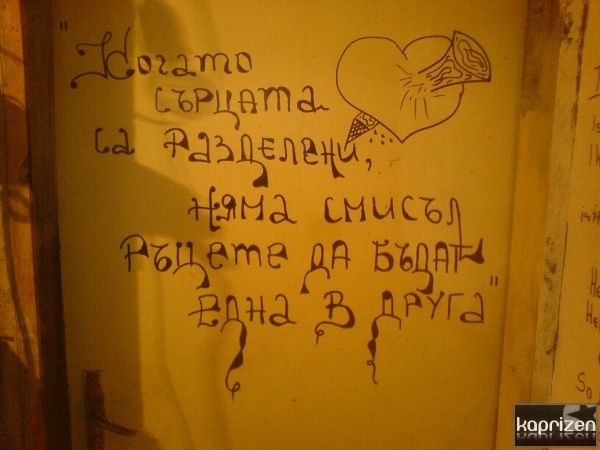 "Когато
сърцата
са разделени,
няма смисъл
ръцете да бъдат
една в друга"
Is
So
kaprizen